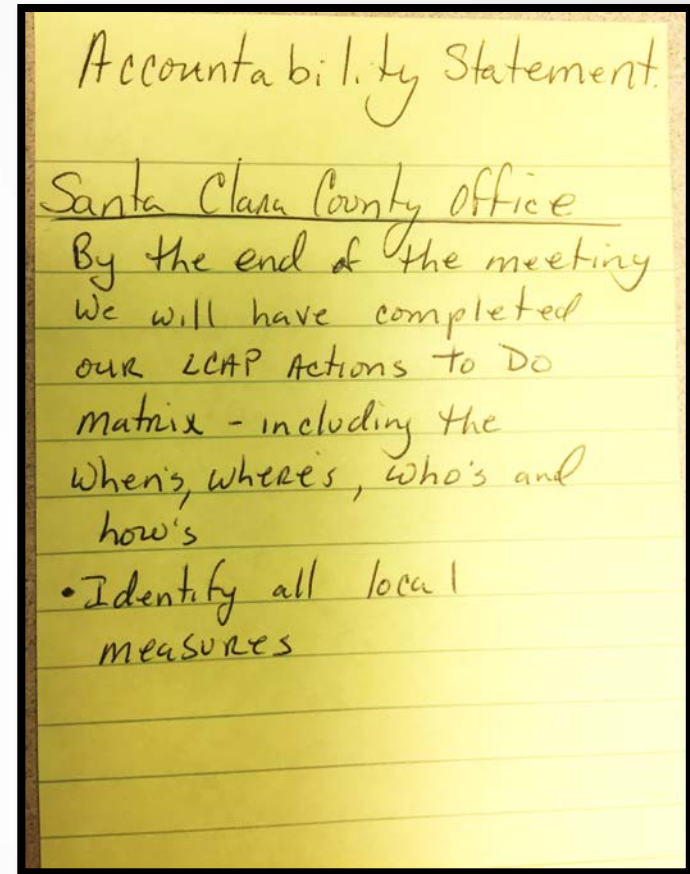 Accountability Statement.
Santa Clara County Office
By the end of the meeting
We will have completed
our LCAP Actions to Do
matrix - including the
When's, where's, who's and
how's
• Identify all local
measures